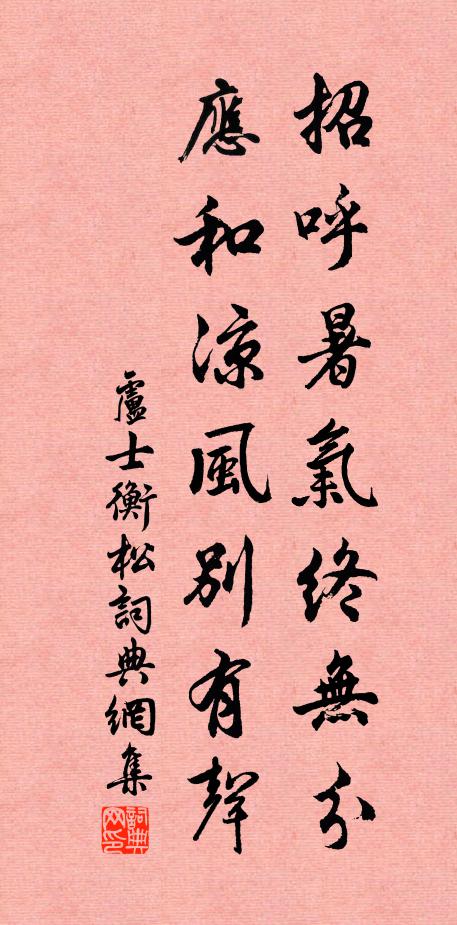 招呼暑氣終無分
應和涼風別有聲
盧士衡松詞典網集
詞典網印